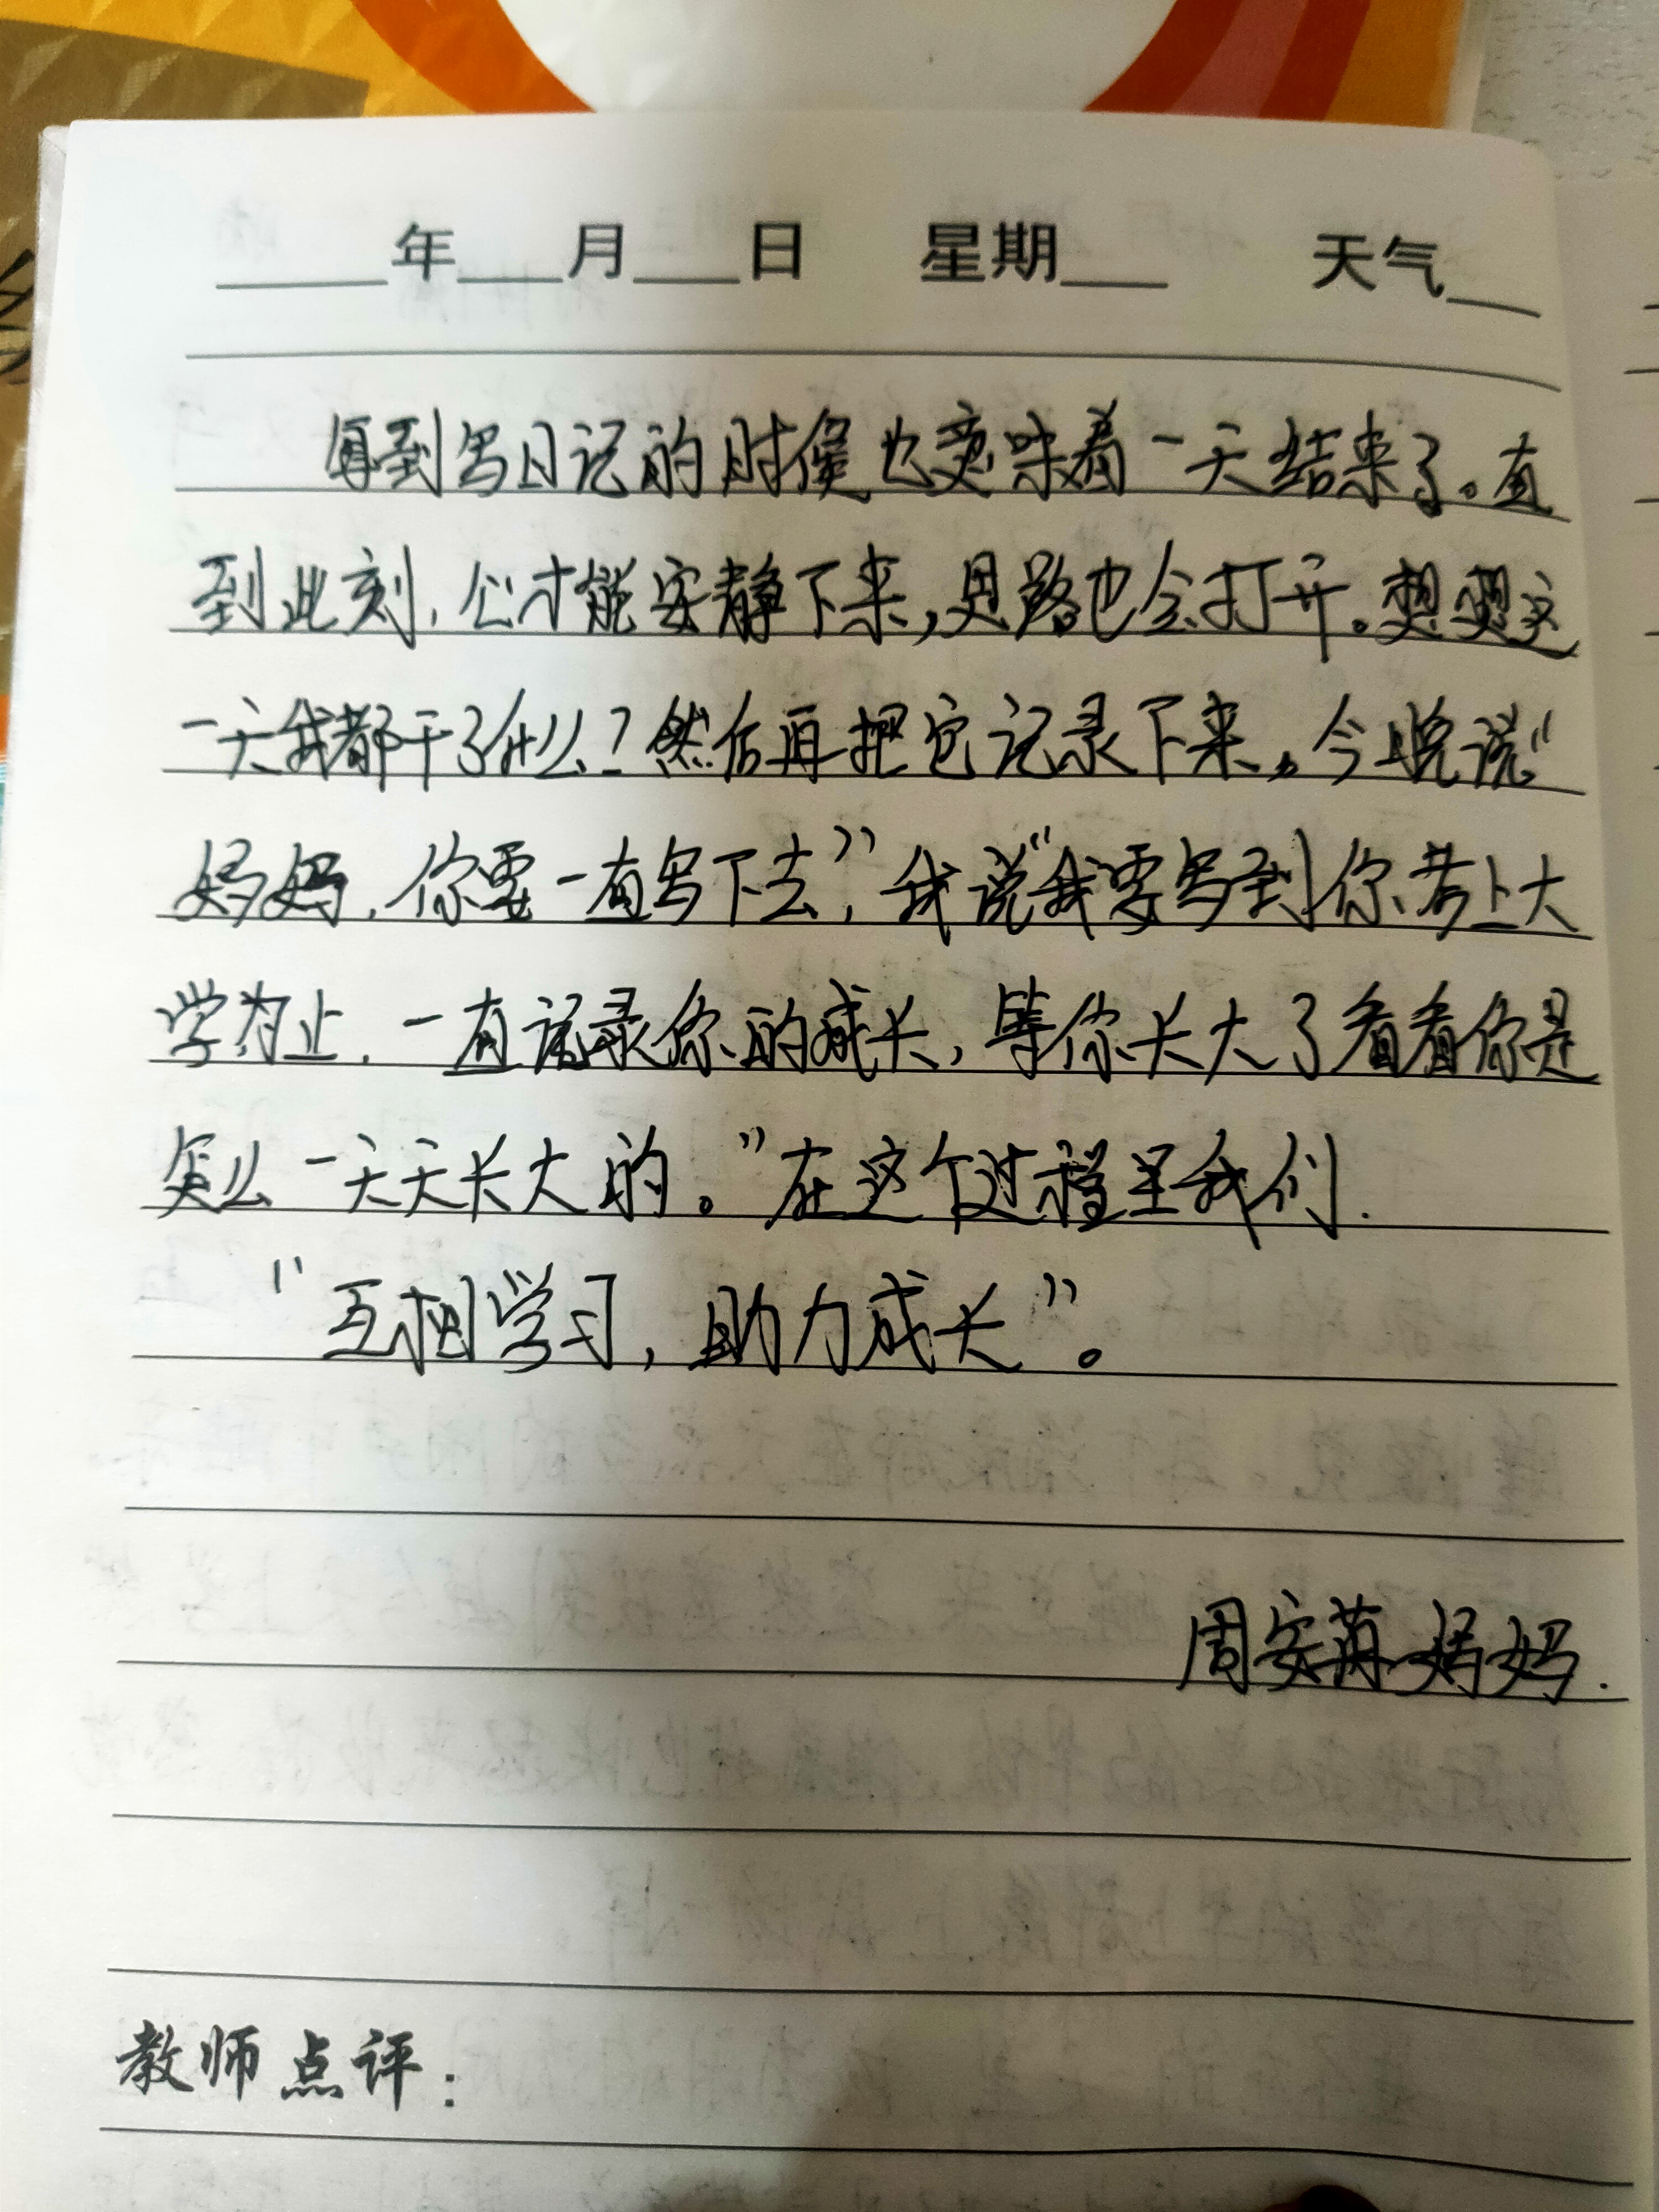 年 月 日 星期 天气
每到写日记的时候也意味着一天结束了。直
到此刻,心才能安静下来,思路也会打开。想想这
一天我都干了什么?然后再把它记录下来。今晚说"
妈妈,你要一直写下去",我说"我要写到你考上大
学为止,一直记录你的成长,等你长大了看看你是
怎么一天天长大的。"在这个过程里我们.
"互相学习,助力成长"。
周安苒妈妈.
教师点评: